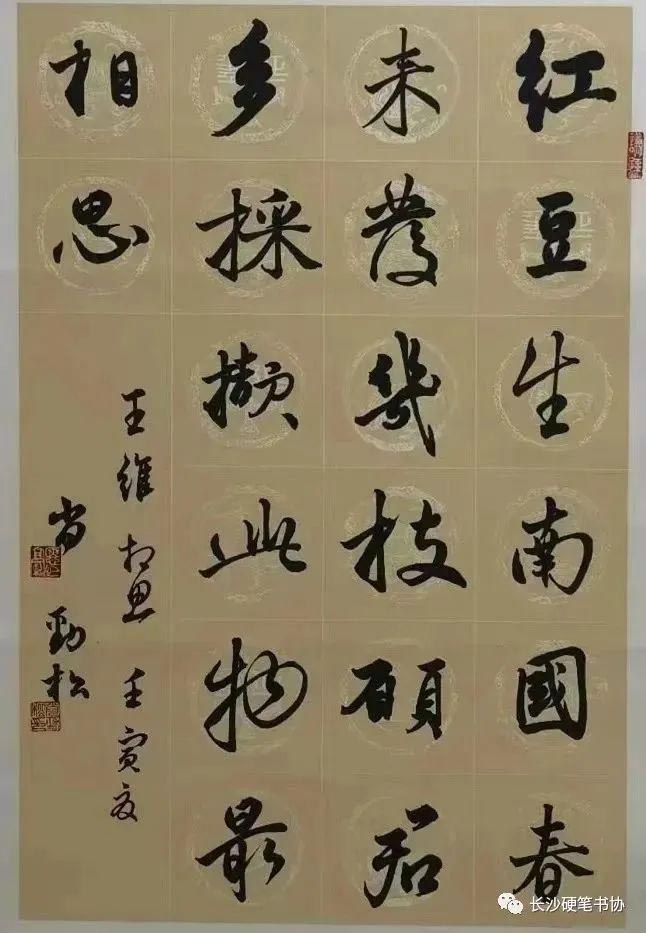 红豆生南國春
未發幾枝願君
多採擷此物最
相思
王維相思 壬寅夏
肖勁松
长沙硬笔书协